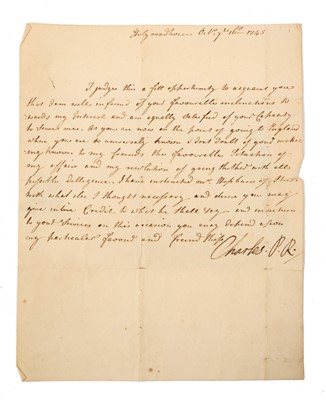 Holyroodhouse Octbr ye 16th 1745
I judges this a fitt opportunity to acquaint you
that I am well informd of your favourable inclinations to
wards my Interest and am equally satisfied of your Capacity
to serve me. As you are now on the point of going to England
where you are so universally known I dont doubt of your makes
ing known to my friends the favourable situation of
my affairs and my resolution of going thither with all
possible dilligence. I have instructed Mr. Hepburn of
with what else I thought necessary, and desire you may
give intire Credit to what he shall say and in return
to your services on this occasion you may depend upon
my particular favour and friendship
Charles. P. R.